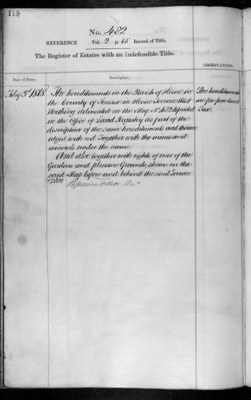 113
No. 402
REFERENCE Vol. 2 p. 65 Record of Title.
The Register of Estates with an Indefeasible Title.
Date of Entry. Description. OBSERVATIONS.
1868. The hereditaments in the Parish of Heene in
the County of Sussex in Heene Terrace West
Worthing delineated on the Map deposited
in the Office of Land Registry as part of the
description of the same hereditaments and therein
edged with red Together with the mines and
minerals under the same
And also together with rights of user of the
Gardens and pleasure Grounds shown on the
said Map before and behind the said Terrace
The hereditaments
are free from Land
Tax.